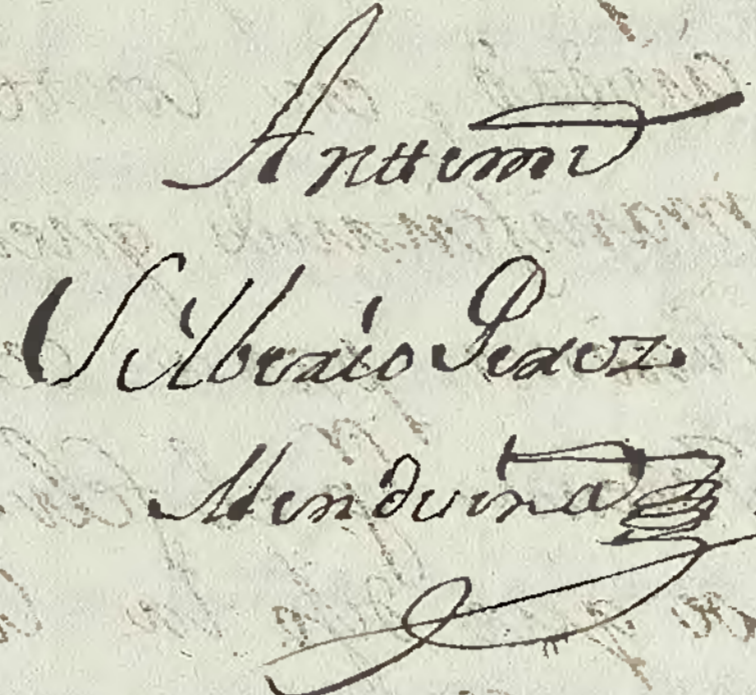 Ante mi
Silberio Perez
Menduiña